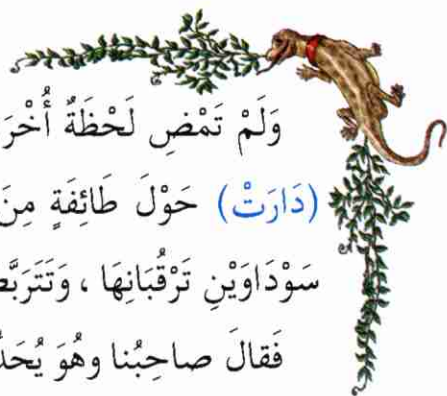 وَلَمْ تَمْضِ لَحْظَةٌ أُخْرَ
(دَارَتْ) حَوْلَ طَائِفَةٍ مِنَ
سَوْدَاوَيْنِ تَرْقُبَانِهَا ، وَتَتَرَبَّصَ
فَقالَ صاحِبُنا وهُوَ يُحَدِّ